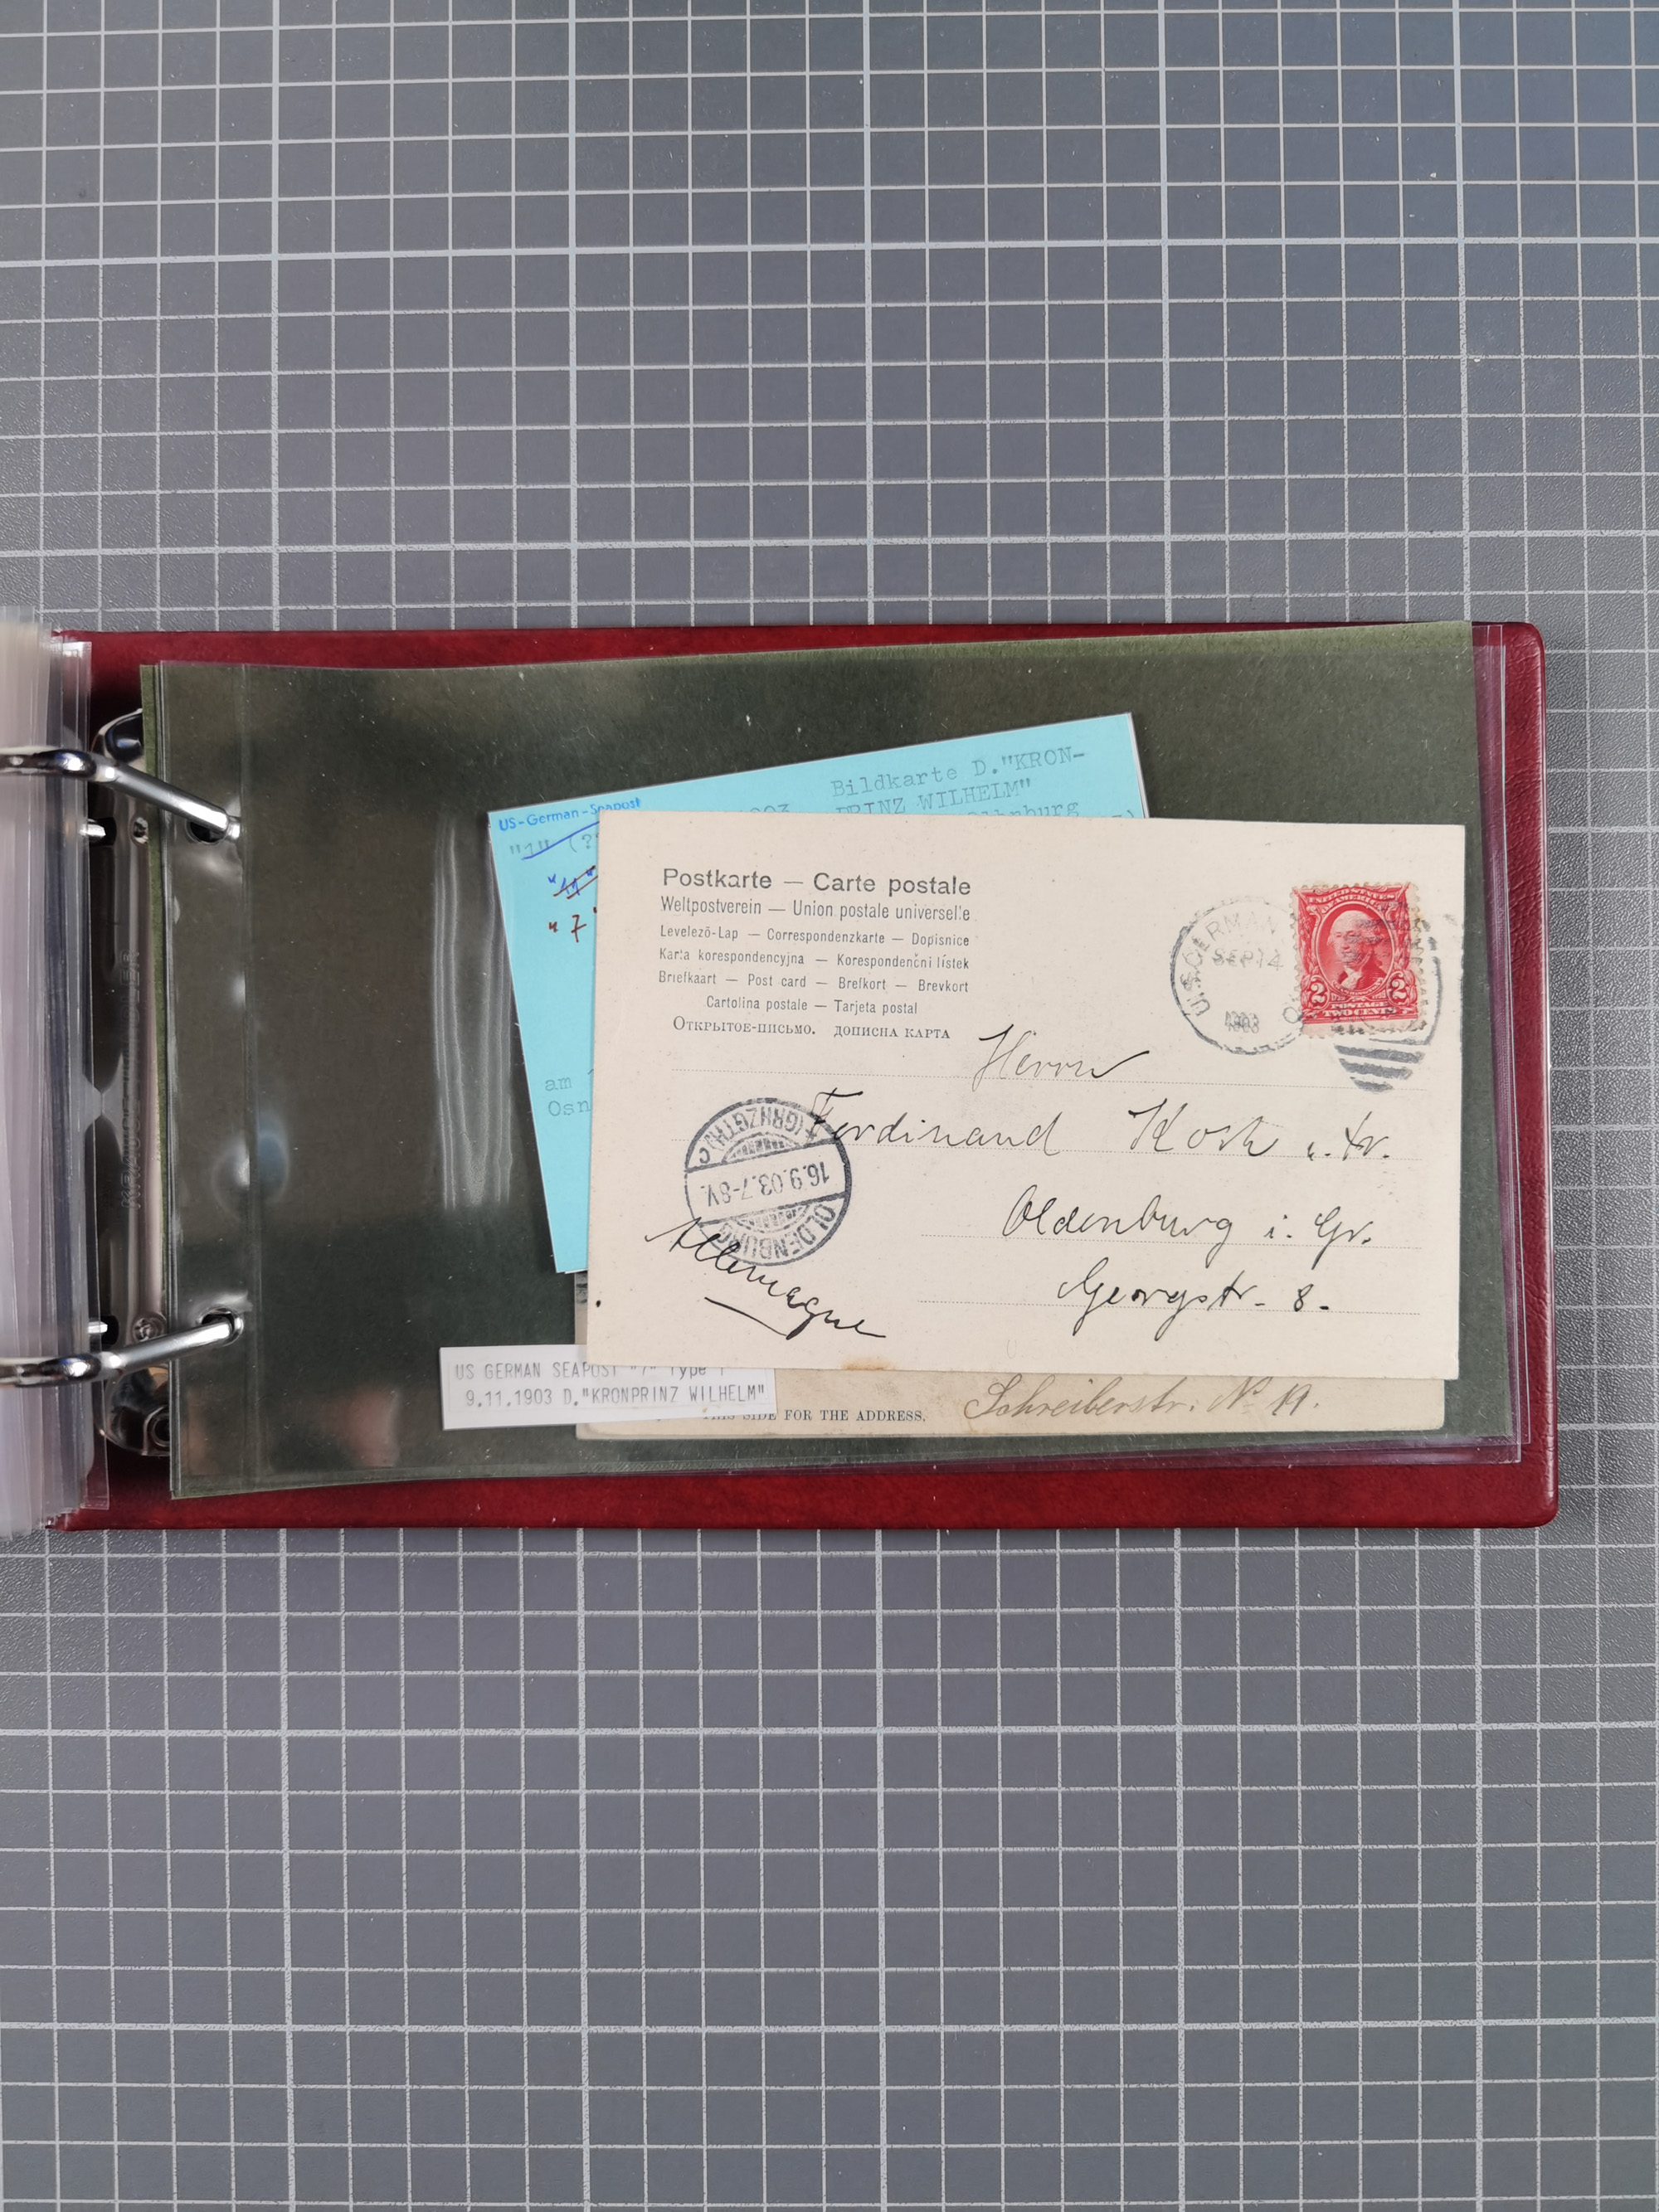 Bildkarte D."KRON-
US-German-Seapost
PRINZ WILHELM"
"1" (?
"11"
"7"
am
Osn
Postkarte — Carte postale
Weltpostverein — Union postale universelle
Levelező-Lap — Correspondenzkarte — Dopisnice
Karta korespondencyjna — Korespondenční lístek
Briefkaart — Post card — Brefkort — Brevkort
Cartolina postale — Tarjeta postal
Открытое-письмо. дописна карта
U.S. GERMAN
SEP 14
1903
UNITED STATES
OF AMERICA
2 2
POSTAGE
TWO CENTS
Herrn
Ferdinand
Oldenburg i. Gr.
Georgstr. 8.
OLDENBURG
16.9.03.7-8V.
(GRHZGTH) c
Allemagne
US GERMAN SEAPOST "7" Type I
9.11.1903 D."KRONPRINZ WILHELM"
THIS SIDE FOR THE ADDRESS.
Schreiberstr. No 19.